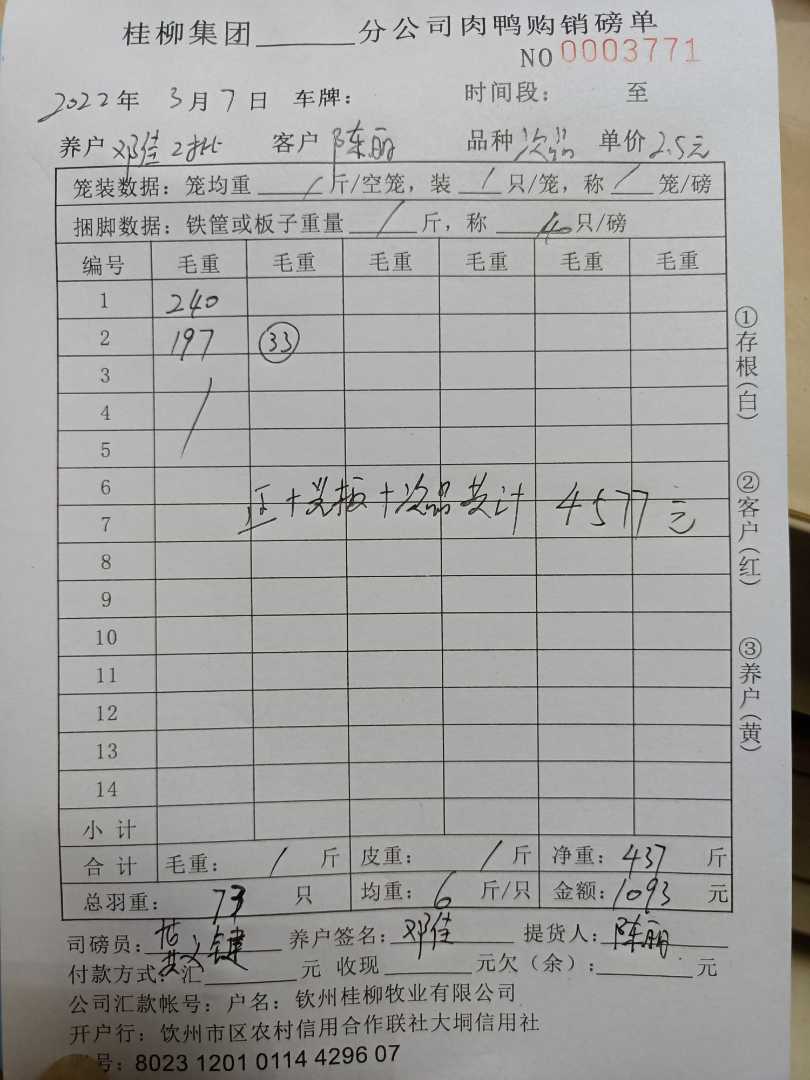 桂柳集团______分公司肉鸭购销磅单
NO 0003771
2022年 3月7日 车牌: 时间段: 至
养户 邓佳2批 客户 陈丽 品种 次品 单价 2.5元
笼装数据:笼均重 / 斤/空笼,装 / 只/笼,称 / 笼/磅
捆脚数据:铁筐或板子重量 / 斤,称 40 只/磅
编号 毛重 毛重 毛重 毛重 毛重 毛重
1 240
2 197 33
3
4 /
5
6
正+光板+次品共计 4577元
7
8
9
10
11
12
13
14
小计
合计 毛重: / 斤 皮重: / 斤 净重: 437 斤
总羽重: 73 只 均重: 6 斤/只 金额: 1093 元
司磅员: 键 养户签名: 邓佳 提货人: 陈丽
付款方式:汇______元 收现______元欠(余):______元
公司汇款帐号:户名:钦州桂柳牧业有限公司
开户行:饮州市区农村信用合作联社大垌信用社
号:8023 1201 0114 4296 07
①存根(白)
②客户(红)
③养户(黄)